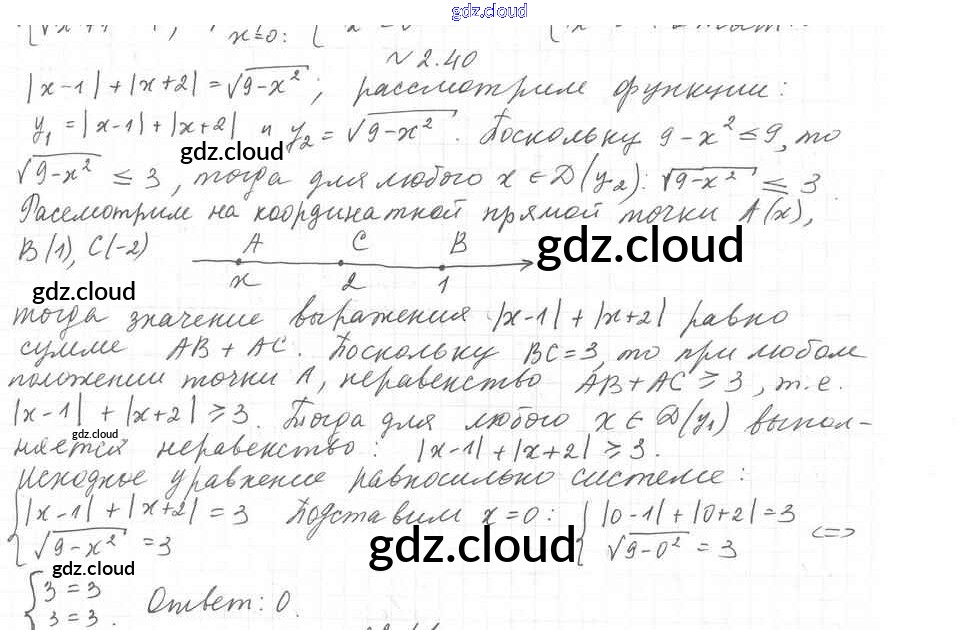 gdz.cloud
x≤0:
N 2.40
|x-1|+|x+2|=√9-x²; рассмотрим функции:
y₁=|x-1|+|x+2| и y₂=√9-x². Поскольку 9-x²≤9, то
gdz.cloud
√9-x² ≤ 3, тогда для любого x∈D(y₂): √9-x² ≤ 3.
Рассмотрим на координатной прямой точки A(x),
B(1), C(-2) A C B gdz.cloud
x 2 1
gdz.cloud
тогда значение выражения |x-1|+|x+2| равно
сумме AB+AC. Поскольку BC=3, то при любом
положении точки A, неравенство AB+AC≥3, т.е.
|x-1|+|x+2|≥3. Тогда для любого x∈D(y₁) выпол-
gdz.cloud
няется неравенство: |x-1|+|x+2|≥3.
Исходное уравнение равносильно системе:
{|x-1|+|x+2|=3 Подставим x=0: {|0-1|+|0+2|=3
√9-x² =3 gdz.cloud √9-0² = 3 <=>
gdz.cloud
{3=3
3=3. Ответ: 0.